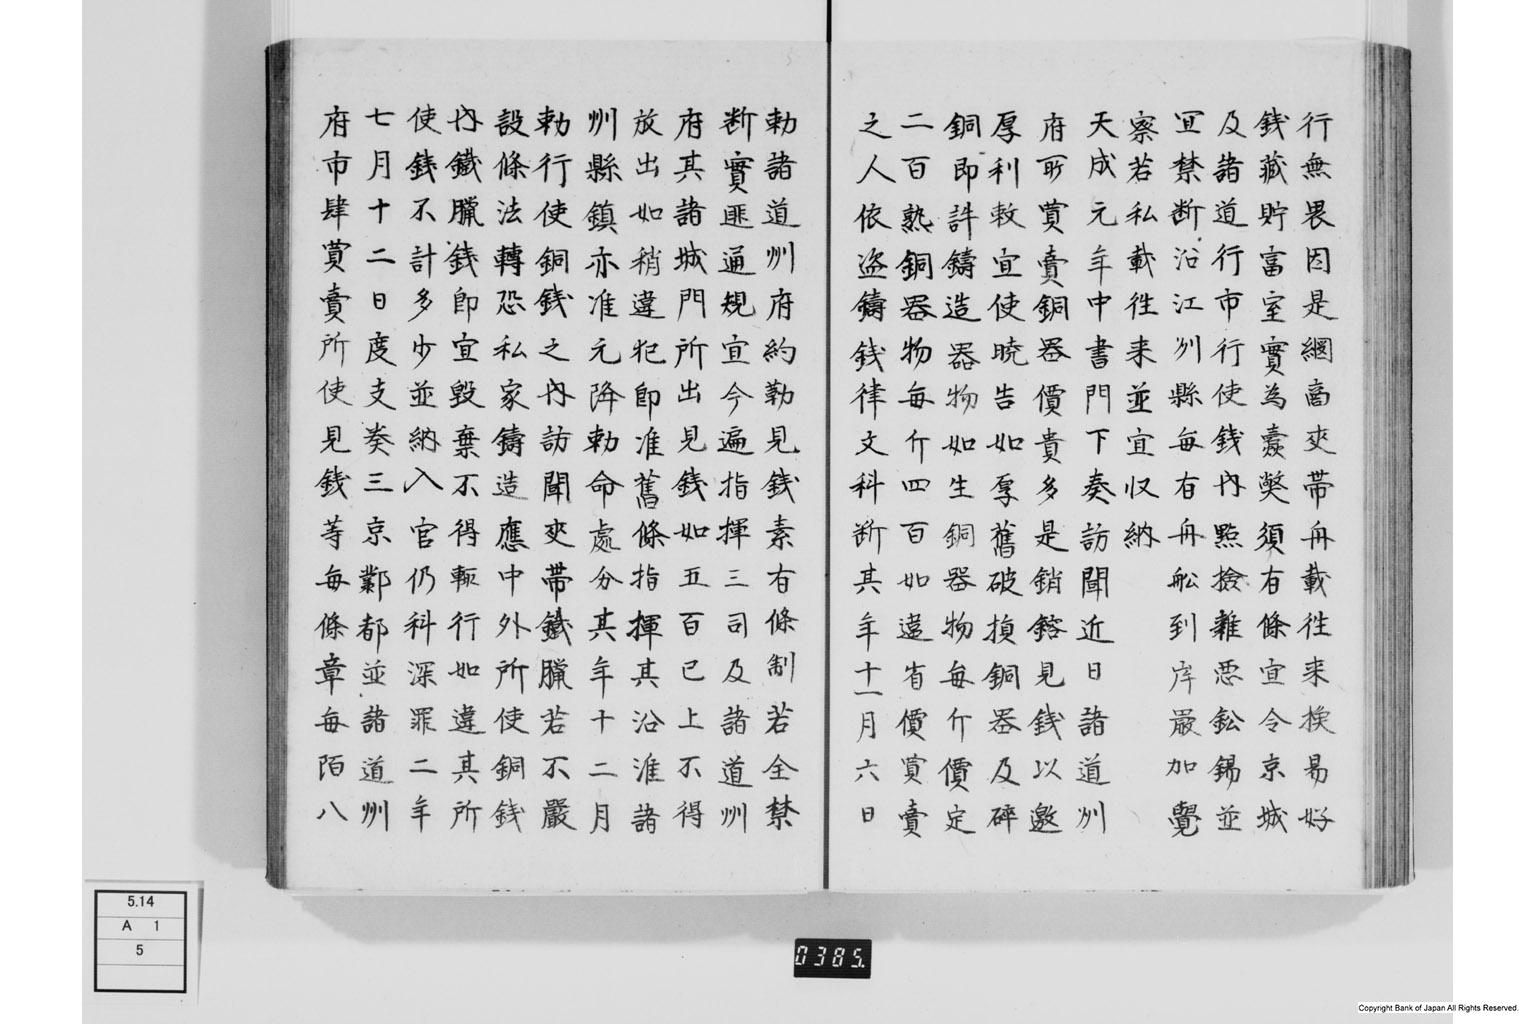 行無畏因是綱商夾帯舟載徃来換易好
銭蔵貯富室實為蠹獘須有條宣令京城
及諸道行市行使銭内㸃撿雜悪鈆錫並
冝禁断沿江州縣毎有舟舩到岸嚴加覺
察若私載徃来並宜収納
天成元年中書門下奏訪聞近日諸道州
府所買賣銅器價貴多是銷鎔見銭以邀
厚利敕宜使曉告如厚舊破損銅器及碎
銅即許鑄造器物如生銅器物毎斤價定
二百熟銅器物毎斤四百如違省價買賣
之人依盗鑄銭律文科断其年十一月六日
勅諸道州府約勒見銭素有條制若全禁
断實匪通規宜今遍指揮三司及諸道州
府其諸城門所出見銭如五百已上不得
放出如稍違犯即准舊條指揮其沿淮諸
州縣鎮亦准元降勅命處分其年十二月
勅行使銅銭之内訪聞夾帯鐵臘若不嚴
設條法轉恐私家鑄造應中外所使銅銭
内鐵臘銭即宜毀棄不得輙行如違其所
使銭不計多少並納入官仍科深罪二年
七月十二日度支奏三京鄴都並諸道州
府市肆買賣所使見銭等毎條章毎陌八
5.14
A 1
5
0385.
Copyright Bank of Japan All Rights Reserved.